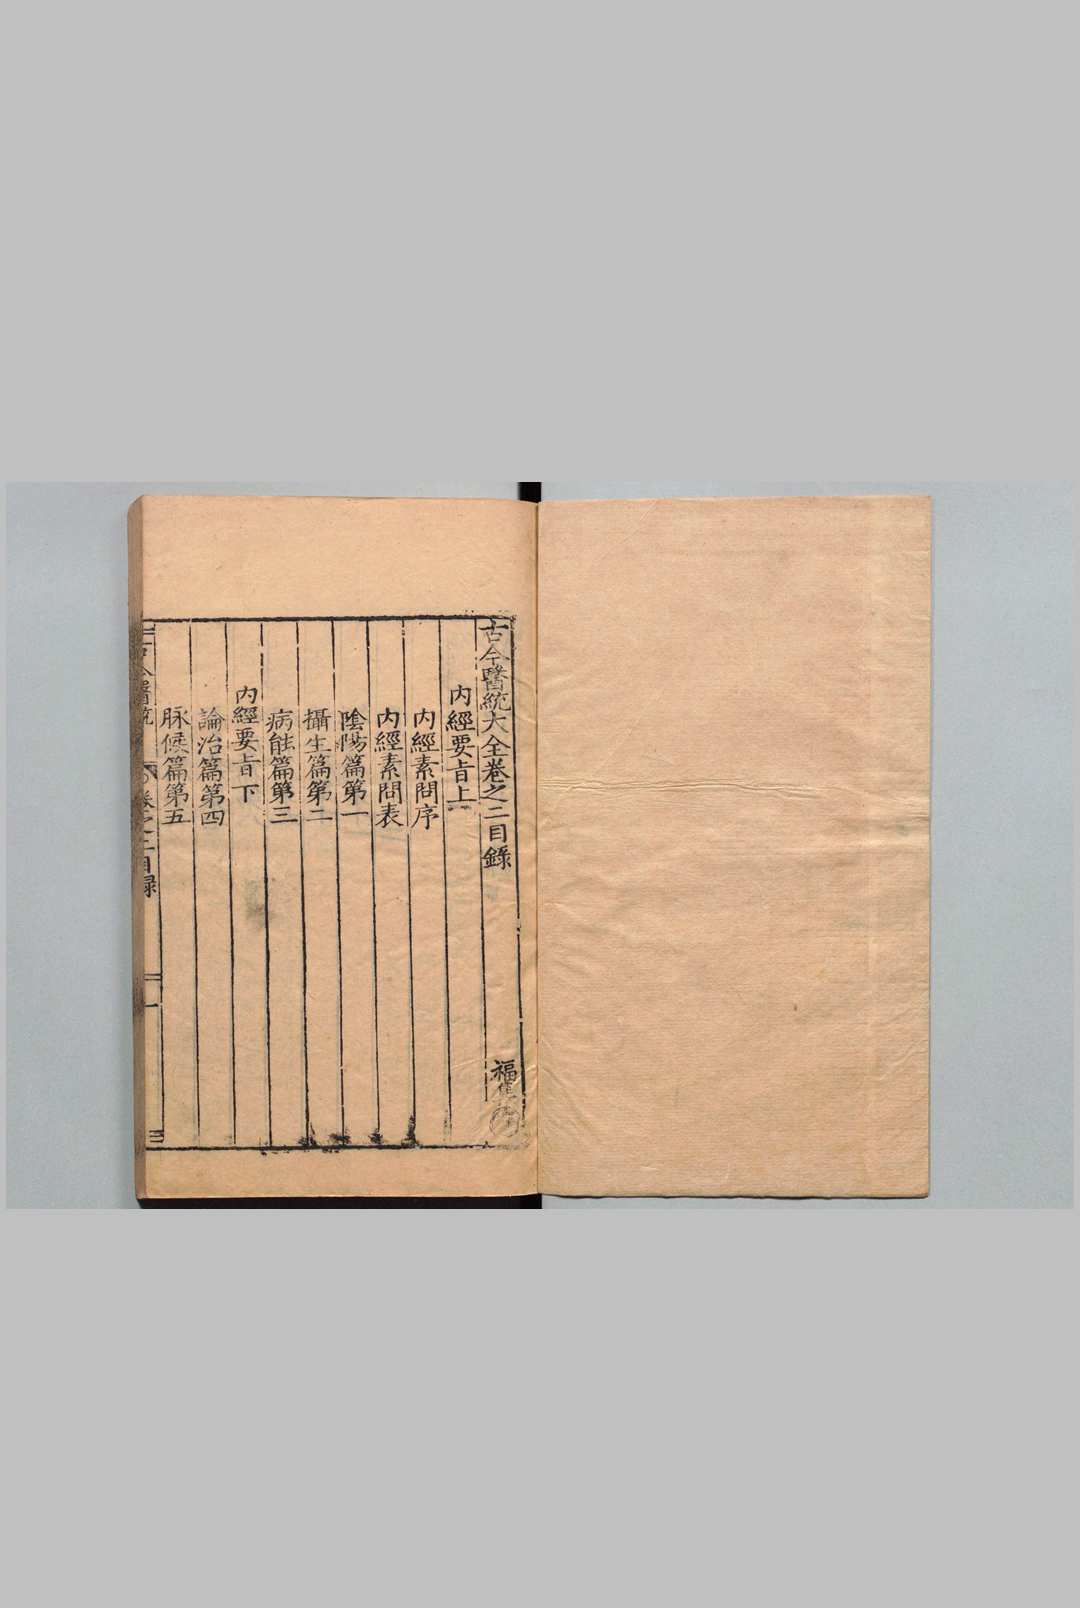 古今醫統大全卷之二目錄
內經要旨上
內經素問序
內經素問表
陰陽篇第一
攝生篇第二
病能篇第三
內經要旨下
論治篇第四
脉候篇第五
卷之二目録
福